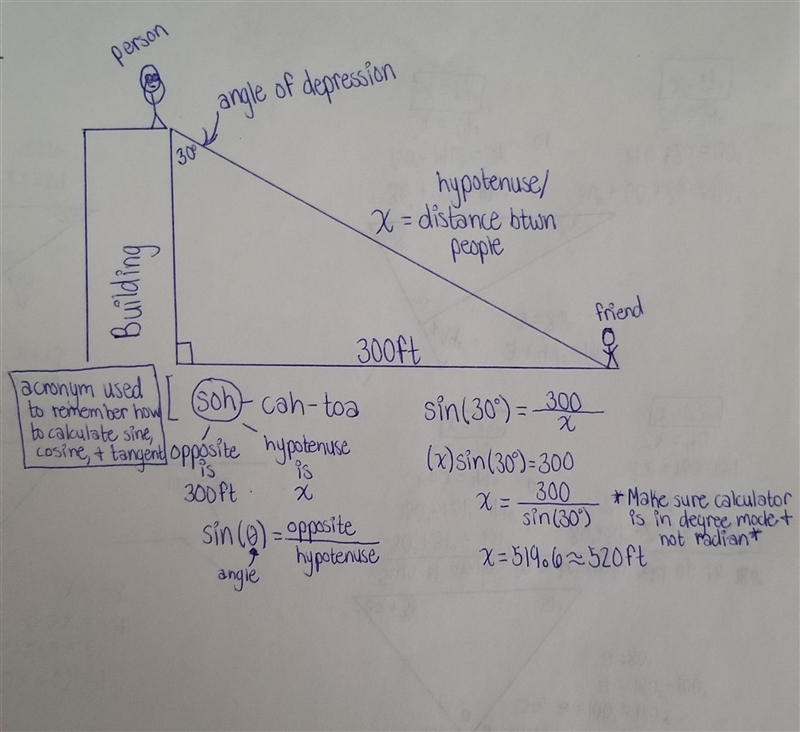 person
angle of depression
30°
hypotenuse/
x = distance btwn
people
Building
friend
300ft
acronym used
to remember how
to calculate sine,
cosine, + tangent
soh-cah-toa
opposite
is
300ft
hypotenuse
is
x
sin(θ)=opposite/hypotenuse
angle
sin(30°)=300/x
(x)sin(30°)=300
x=300/sin(30°)
*Make sure calculator
is in degree mode +
not radian*
x=519.6≈520ft